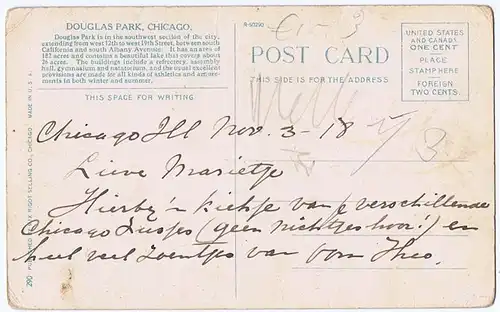 DOUGLAS PARK, CHICAGO.
Douglas Park is in the southwest section of the city,
extending from west 12th to west 19th Street, between south
California and south Albany Avenues. It has an area of
182 acres and contains a beautiful lake that covers about
26 acres. The buildings include a refectory, assembly
hall, gymnasium and natatorium, and the equal excellent
provisions are made for all kinds of athletics and amuse-
ments in both winter and summer.
THIS SPACE FOR WRITING
POST CARD
THIS SIDE IS FOR THE ADDRESS
UNITED STATES
AND CANADA
ONE CENT
PLACE
STAMP HERE
FOREIGN
TWO CENTS
Chicago Ill Nov. 3 - 18
Lieve Marietje
Hierbij 'n kiekje van verschillende
Chicago Zusjes (geen nichtjes hoor!) en
heel veel zoentjes van Oom Theo.
3
290 SELLING CO., CHICAGO. MADE IN U.S.A.